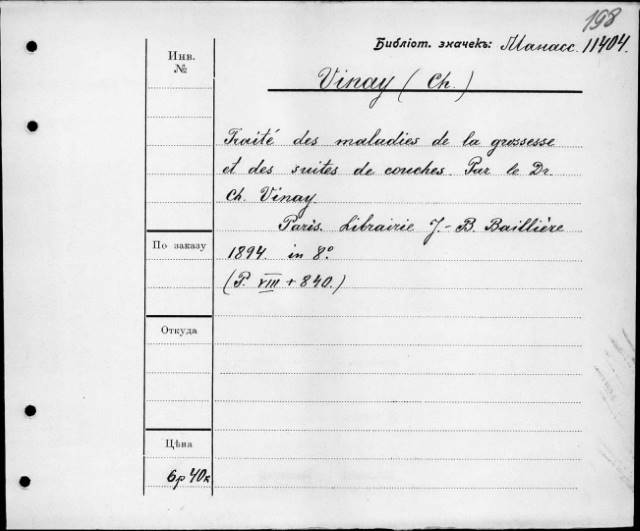 198
Библіот. значекъ: Манасс. 11404.
Инв.
№
Vinay (Ch.)
Traité des maladies de la grossesse
et des suites de couches. Par le Dr.
Ch. Vinay.
Paris. Librairie J.-B. Baillière
По заказу
1894. in 8°.
(P. VIII + 840.)
Откуда
Цѣна
6р 40к